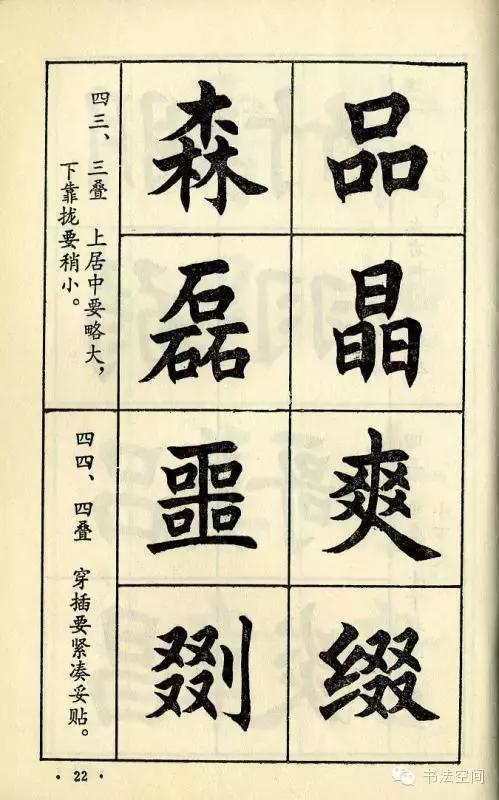 品晶爽缀
森磊噩剟
四三、三叠 上居中要略大，
下靠拢要稍小。
四四、四叠 穿插要紧凑妥贴。
· 22 ·
书法空间